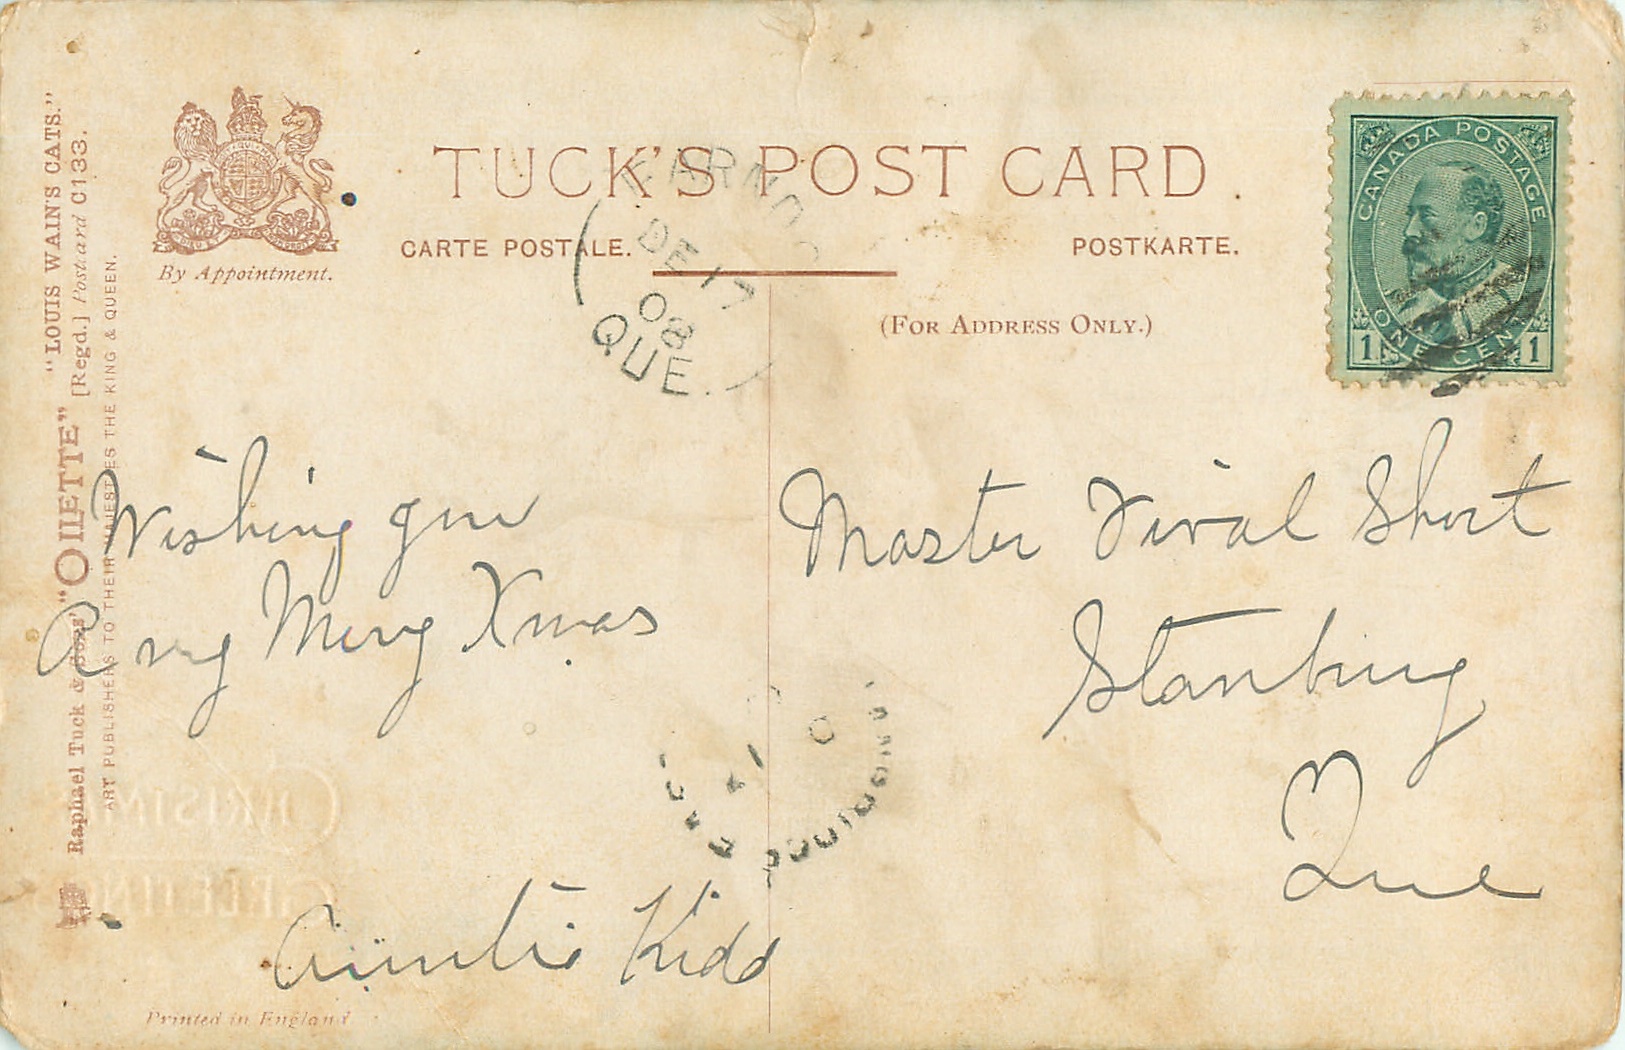 "LOUIS WAIN'S CATS."
Raphael Tuck & Sons' "OILETTE" [Regd.] Postcard C133.
ART PUBLISHERS TO THEIR MAJESTIES THE KING & QUEEN.
By Appointment.
TUCK'S POST CARD.
CARTE POSTALE.
POSTKARTE.
(FOR ADDRESS ONLY.)
CANADA POSTAGE
1 ONE CENT 1
DE 17
08
QUE.
Wishing you
A very Merry Xmas
Auntie Kidd
Master Vival Short
Stanbury
Que
CHRISTM
GREETIN
Printed in England